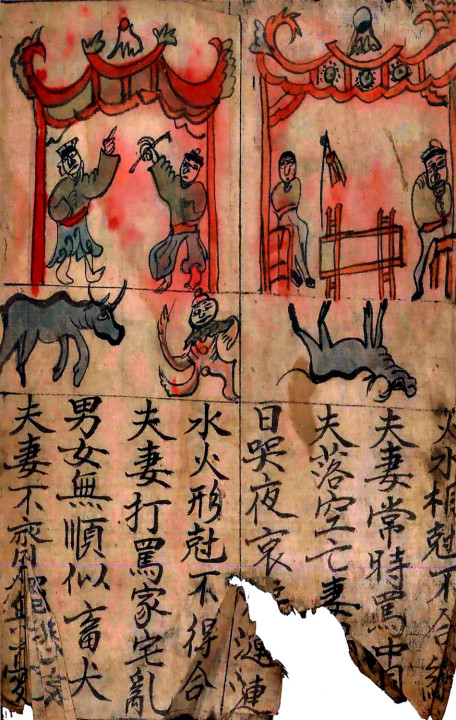 火水相尅不合
夫妻常時罵
夫落空亡妻
日哭夜哀
漣漣
水火形尅不得合
夫妻打罵家宅亂
男女無順似畜犬
夫妻不